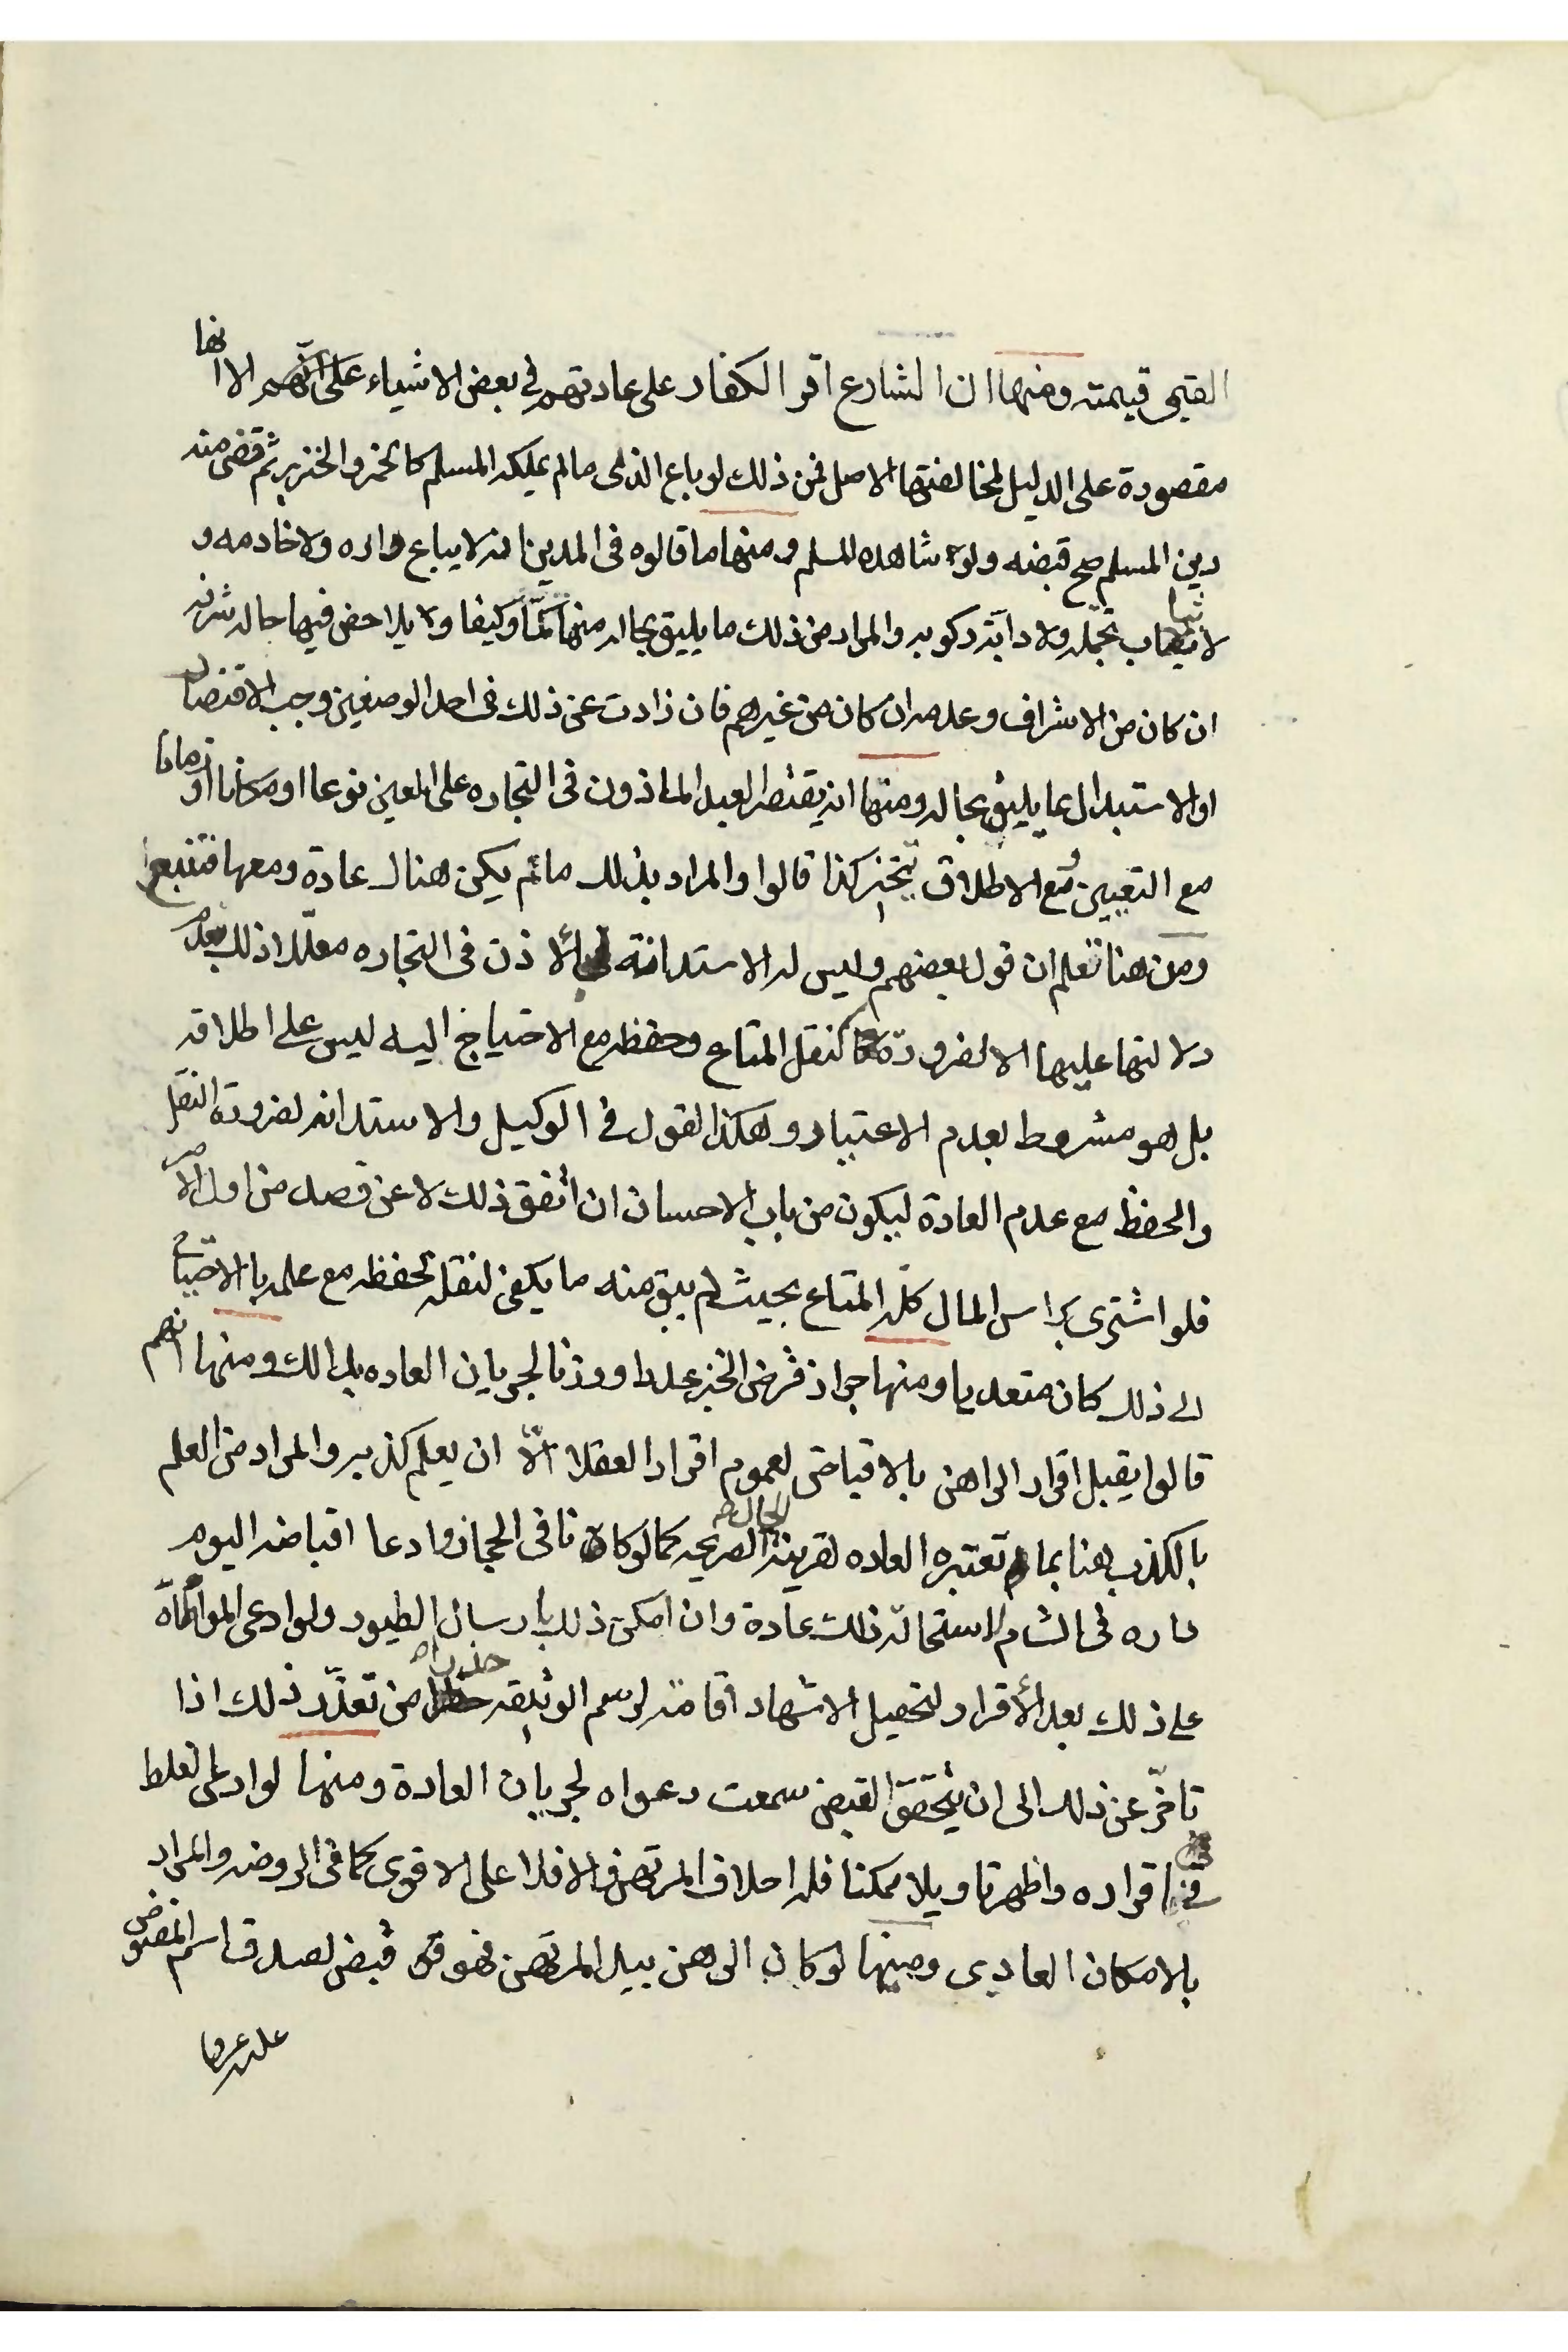 القيمى قيمته ومنها ان الشارع اقر الكفار على عادتهم فى بعض الاشياء على انهم الا انها
مقصورة على الدليل لمخالفتها الاصل فمن ذلك لو باع الذمى مالم يملكه المسلم كالخمر والخنزير ثم قضى منه
دين المسلم صح قبضه ولو شاهده المسلم ومنها ما قالوه فى المدين انه لا يباع داره ولا خادمه و
لا ثياب تجمله ولا دابة ركوبه والمراد من ذلك ما يليق بحاله منها كمّا وكيفا و يلاحض فيها حاله شرفه
ان كان من الاشراف وعدمه ان كان من غيرهم فان زادت عن ذلك فى احد الوصفين وجب الاقتصار
او الاستبدال بما يليق بحاله ومنها انه يقتصر العبد الماذون فى التجاره على المعين نوعا او مكانا او زمانا
مع التعيين ومع الاطلاق يتخير كذا قالوا والمراد بذلك مالم يكن هناك عادة ومعها فتتبع
ومن هنا تعلم ان قول بعضهم وليس له الاستدانة بالاذن فى التجاره معللا ذلك بعدم
دلالتها عليها الا لضرورة كنقل المتاع وحفظه مع الاحتياج اليه ليس على اطلاقه
بل هو مشروط بعدم الاعتبار وهكذا القول فى الوكيل والاستدانه لضرورة النقل
والحفظ مع عدم العادة ليكون من باب الاحسان ان اتفق ذلك لا عن قصد من اول الامر
فلو اشترى براس المال كله المتاع بحيث لم يبق منه ما يكفى لنقله لحفظه مع علمه بالاحتياج
الى ذلك كان متعديا ومنها جواز قرض الخبز عددا ووزنا لجريان العاده بذلك ومنها انهم
قالوا يقبل اقرار الراهن بالاقباض لعموم اقرار العقلا الّا ان يعلم كذبه والمراد من العلم
بالكذب هنا بما تعتبره العاده لقرينة الحال الصريحه كما لو كانا فى الحجاز وادعا اقباضه اليوم
داره فى الشام لاستحالة ذلك عادة وان امكن ذلك بارسال الطيور ولو ادعى المواطاة
على ذلك بعد الأقرار لتحصيل الاشهاد اقامة لرسم الوثيقه حذرا من تعذّر ذلك اذا
تاخّر عن ذلك الى ان يتحقق القبض سمعت دعواه لجريان العادة ومنها لو ادعى الغلط
فى اقراره واظهر تاويلا ممكنا فله احلاف المرتهن والا فلا على الاقوى كما فى الروضه والمراد
بالامكان العادى ومنها لو كان الرهن بيد المرتهن فهو قبض لصدق اسم المقبوض
عليه عرفا